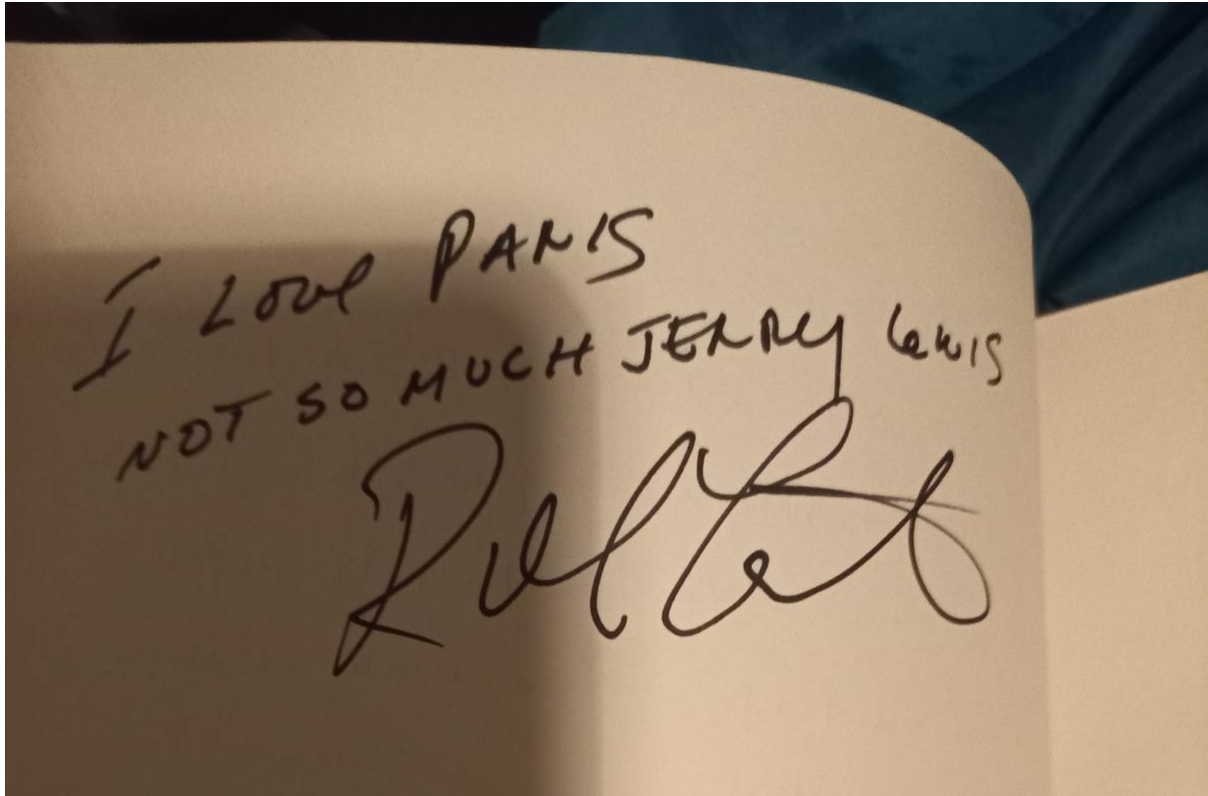 I LOVE PARIS
NOT SO MUCH JERRY LEWIS